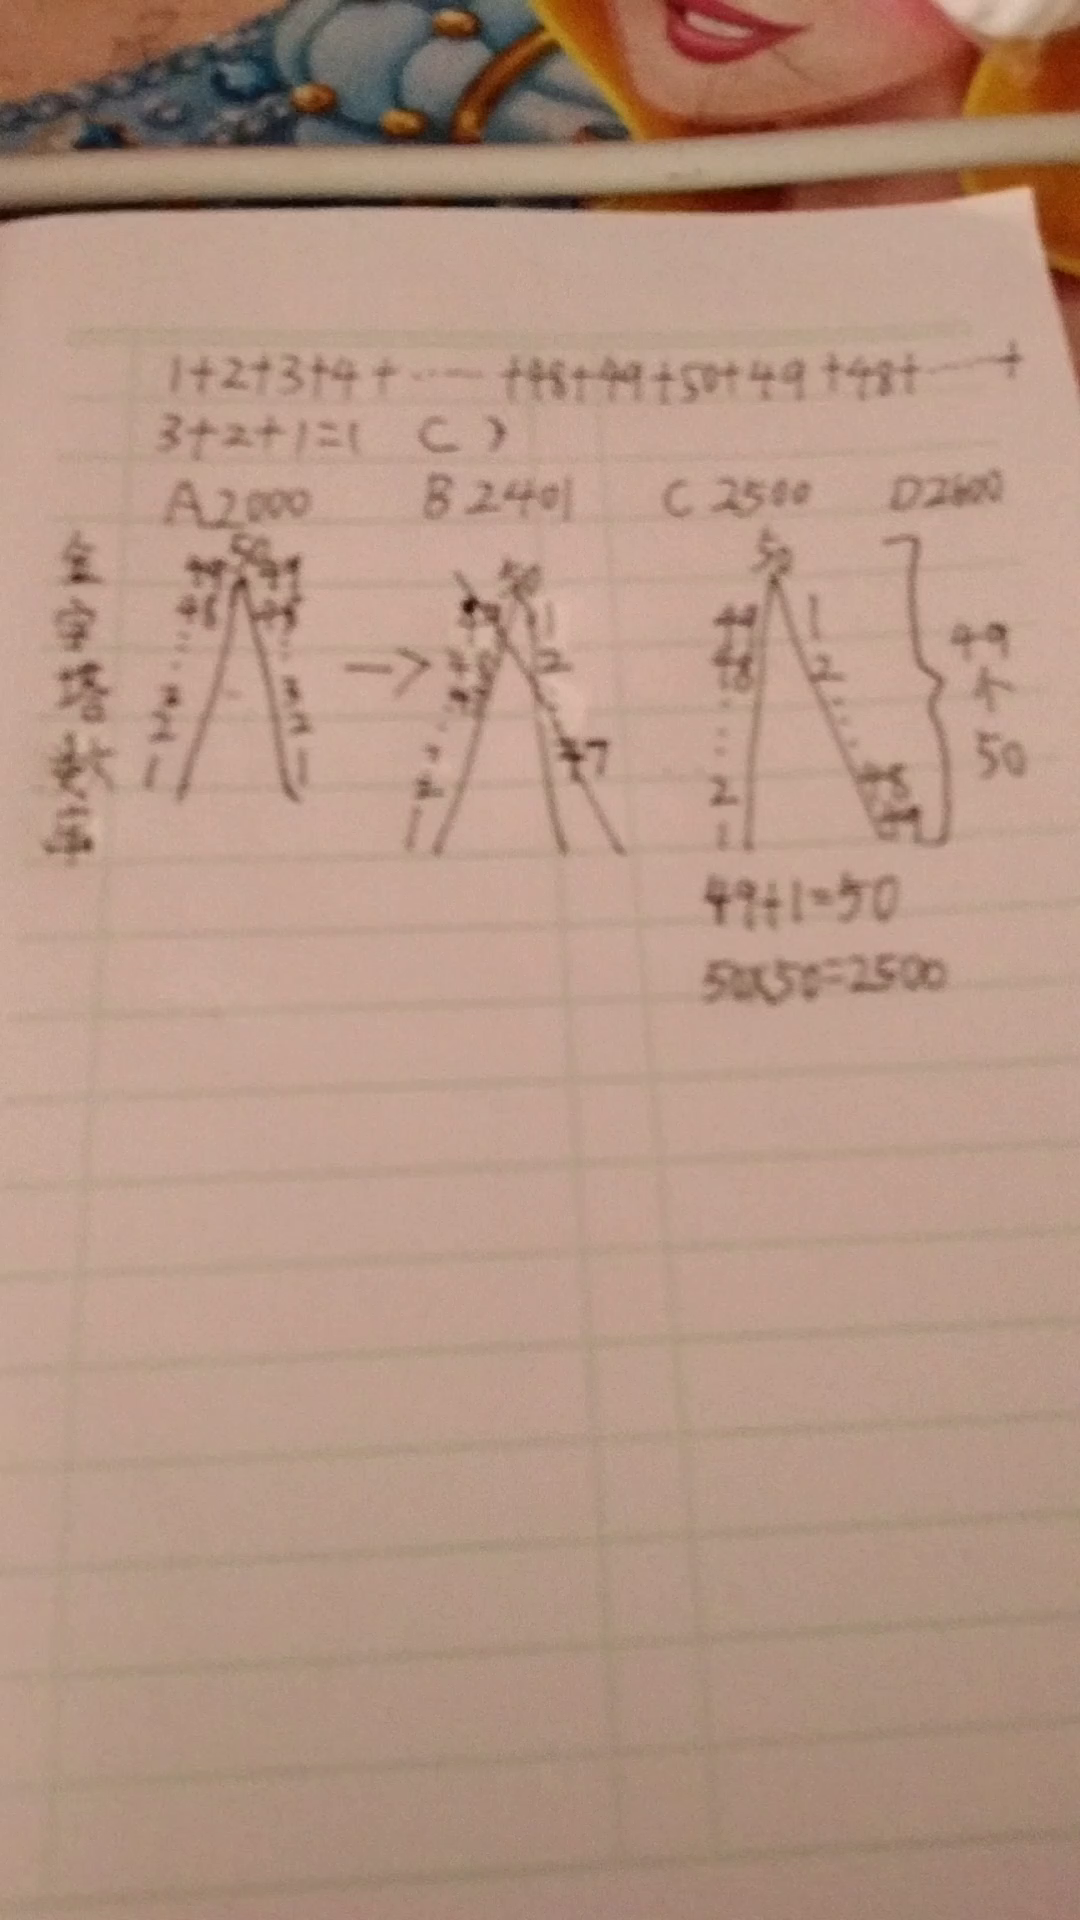 1+2+3+4+……+48+49+50+49+48+……+
3+2+1=( C )
A2000 B2401 C2500 D2600
金字塔数列
50
49 49
48 48
⋮ ⋮
3 3
2 2
1 1
→
50
49 1
48 2
⋮ ⋮
47
2
1
50
49 1
48 2
⋮ ⋮
2 48
1 49
49个50
49+1=50
50×50=2500